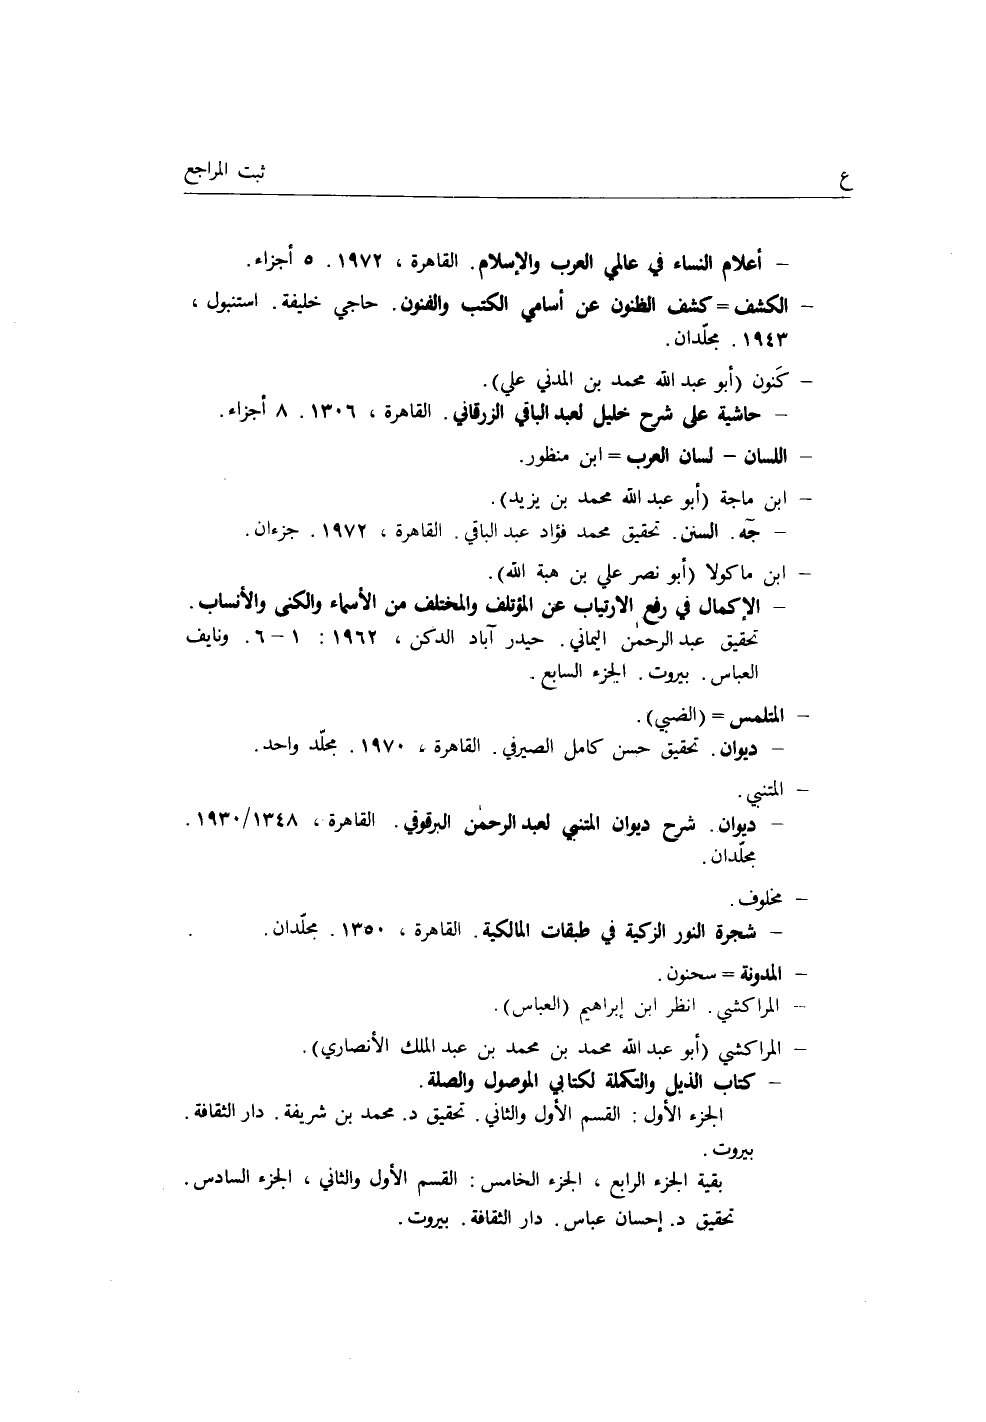 ع ثبت المراجع
– أعلام النساء في عالمي العرب والإسلام. القاهرة ، ١٩٧٢. ٥ أجزاء.
– الكشف = كشف الظنون عن أسامي الكتب والفنون. حاجي خليفة. استنبول ،
١٩٤٣. مجلّدان.
– كَنون (أبو عبد الله محمد بن المدني علي).
– حاشية على شرح خليل لعبد الباقي الزرقاني. القاهرة ، ١٣٠٦. ٨ أجزاء.
– اللسان – لسان العرب = ابن منظور.
– ابن ماجة (أبو عبد الله محمد بن يزيد).
– جَه. السنن. تحقيق محمد فؤاد عبد الباقي. القاهرة ، ١٩٧٢. جزءان.
– ابن ماكولا (أبو نصر علي بن هبة الله).
– الإكمال في رفع الارتياب عن المؤتلف والمختلف من الأسماء والكنى والأنساب.
تحقيق عبد الرحمٰن اليماني. حيدر آباد الدكن ، ١٩٦٢ : ١ – ٦. ونايف
العباس. بيروت. الجزء السابع.
– المتلمس = (الضبي).
– ديوان. تحقيق حسن كامل الصيرفي. القاهرة ، ١٩٧٠. مجلّد واحد.
– المتنبي.
– ديوان. شرح ديوان المتنبي لعبد الرحمٰن البرقوقي. القاهرة ، ١٩٣٠/١٣٤٨.
مجلّدان.
– مخلوف.
– شجرة النور الزكية في طبقات المالكية. القاهرة ، ١٣٥٠. مجلّدان.
– المدونة = سحنون.
– المراكشي. انظر ابن إبراهيم (العباس).
– المراكشي (أبو عبد الله محمد بن محمد بن عبد الملك الأنصاري).
– كتاب الذيل والتكملة لكتابي الموصول والصلة.
الجزء الأول : القسم الأول والثاني. تحقيق د. محمد بن شريفة. دار الثقافة.
بيروت.
بقية الجزء الرابع ، الجزء الخامس : القسم الأول والثاني ، الجزء السادس.
تحقيق د. إحسان عباس. دار الثقافة. بيروت.